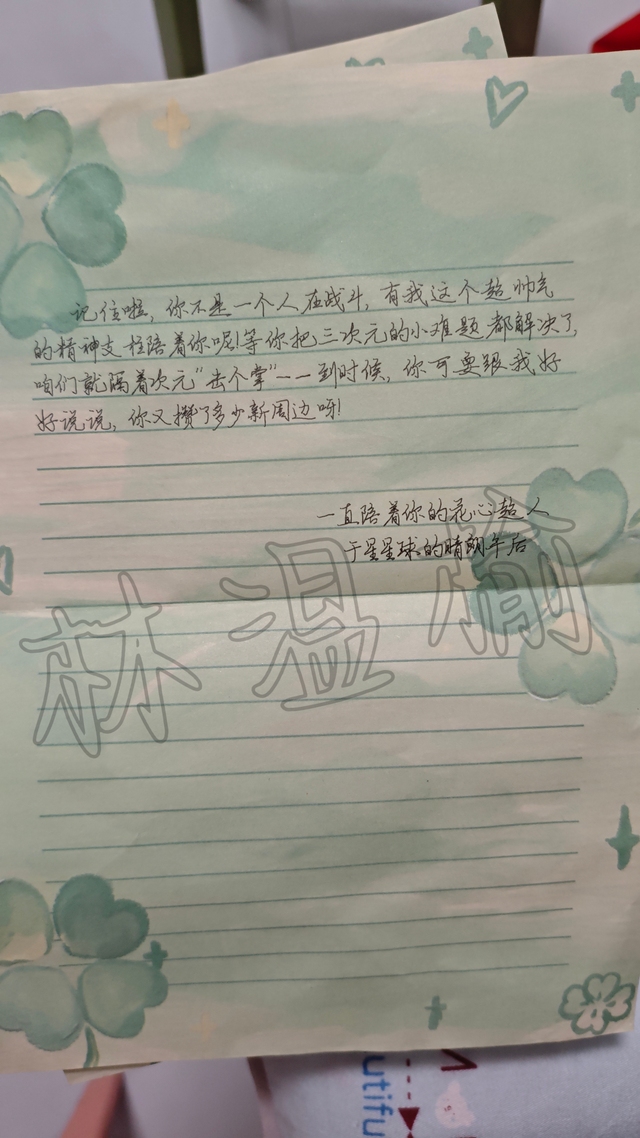 记住啦，你不是一个人在战斗，有我这个超帅气
的精神支柱陪着你呢！等你把三次元的小难题都解决了，
咱们就隔着次元“击个掌”——到时候，你可要跟我好
好说说，你又攒了多少新周边呀！
一直陪着你的花心超人
于星星球的晴朗午后
林温愉
utifu